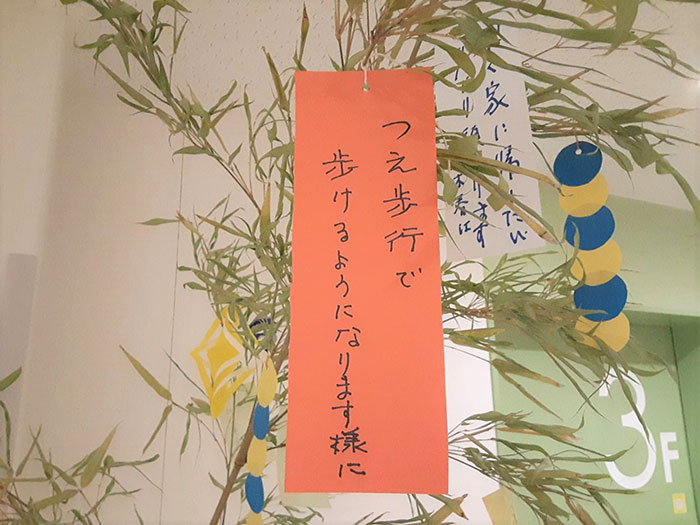 つえ歩行で
歩けるようになります様に
家に帰りたい
3F